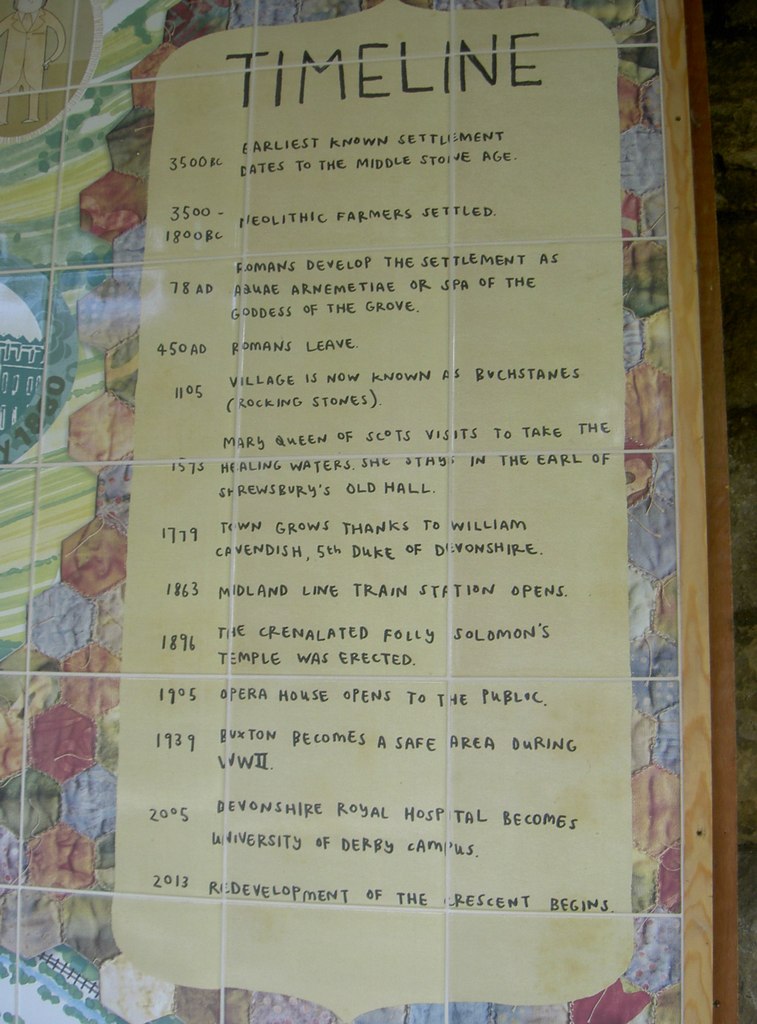 TIMELINE
3500BC EARLIEST KNOWN SETTLEMENT
DATES TO THE MIDDLE STONE AGE.
3500 -
1800BC NEOLITHIC FARMERS SETTLED.
78 AD ROMANS DEVELOP THE SETTLEMENT AS
AQUAE ARNEMETIAE OR SPA OF THE
GODDESS OF THE GROVE.
450AD ROMANS LEAVE.
1105 VILLAGE IS NOW KNOWN AS BUCHSTANES
(ROCKING STONES).
1573 MARY QUEEN OF SCOTS VISITS TO TAKE THE
HEALING WATERS. SHE STAYS IN THE EARL OF
SHREWSBURY'S OLD HALL.
1779 TOWN GROWS THANKS TO WILLIAM
CAVENDISH, 5th DUKE OF DEVONSHIRE.
1863 MIDLAND LINE TRAIN STATION OPENS.
1896 THE CRENALATED FOLLY SOLOMON'S
TEMPLE WAS ERECTED.
1905 OPERA HOUSE OPENS TO THE PUBLIC.
1939 BUXTON BECOMES A SAFE AREA DURING
WWII.
2005 DEVONSHIRE ROYAL HOSPITAL BECOMES
UNIVERSITY OF DERBY CAMPUS.
2013 REDEVELOPMENT OF THE CRESCENT BEGINS.